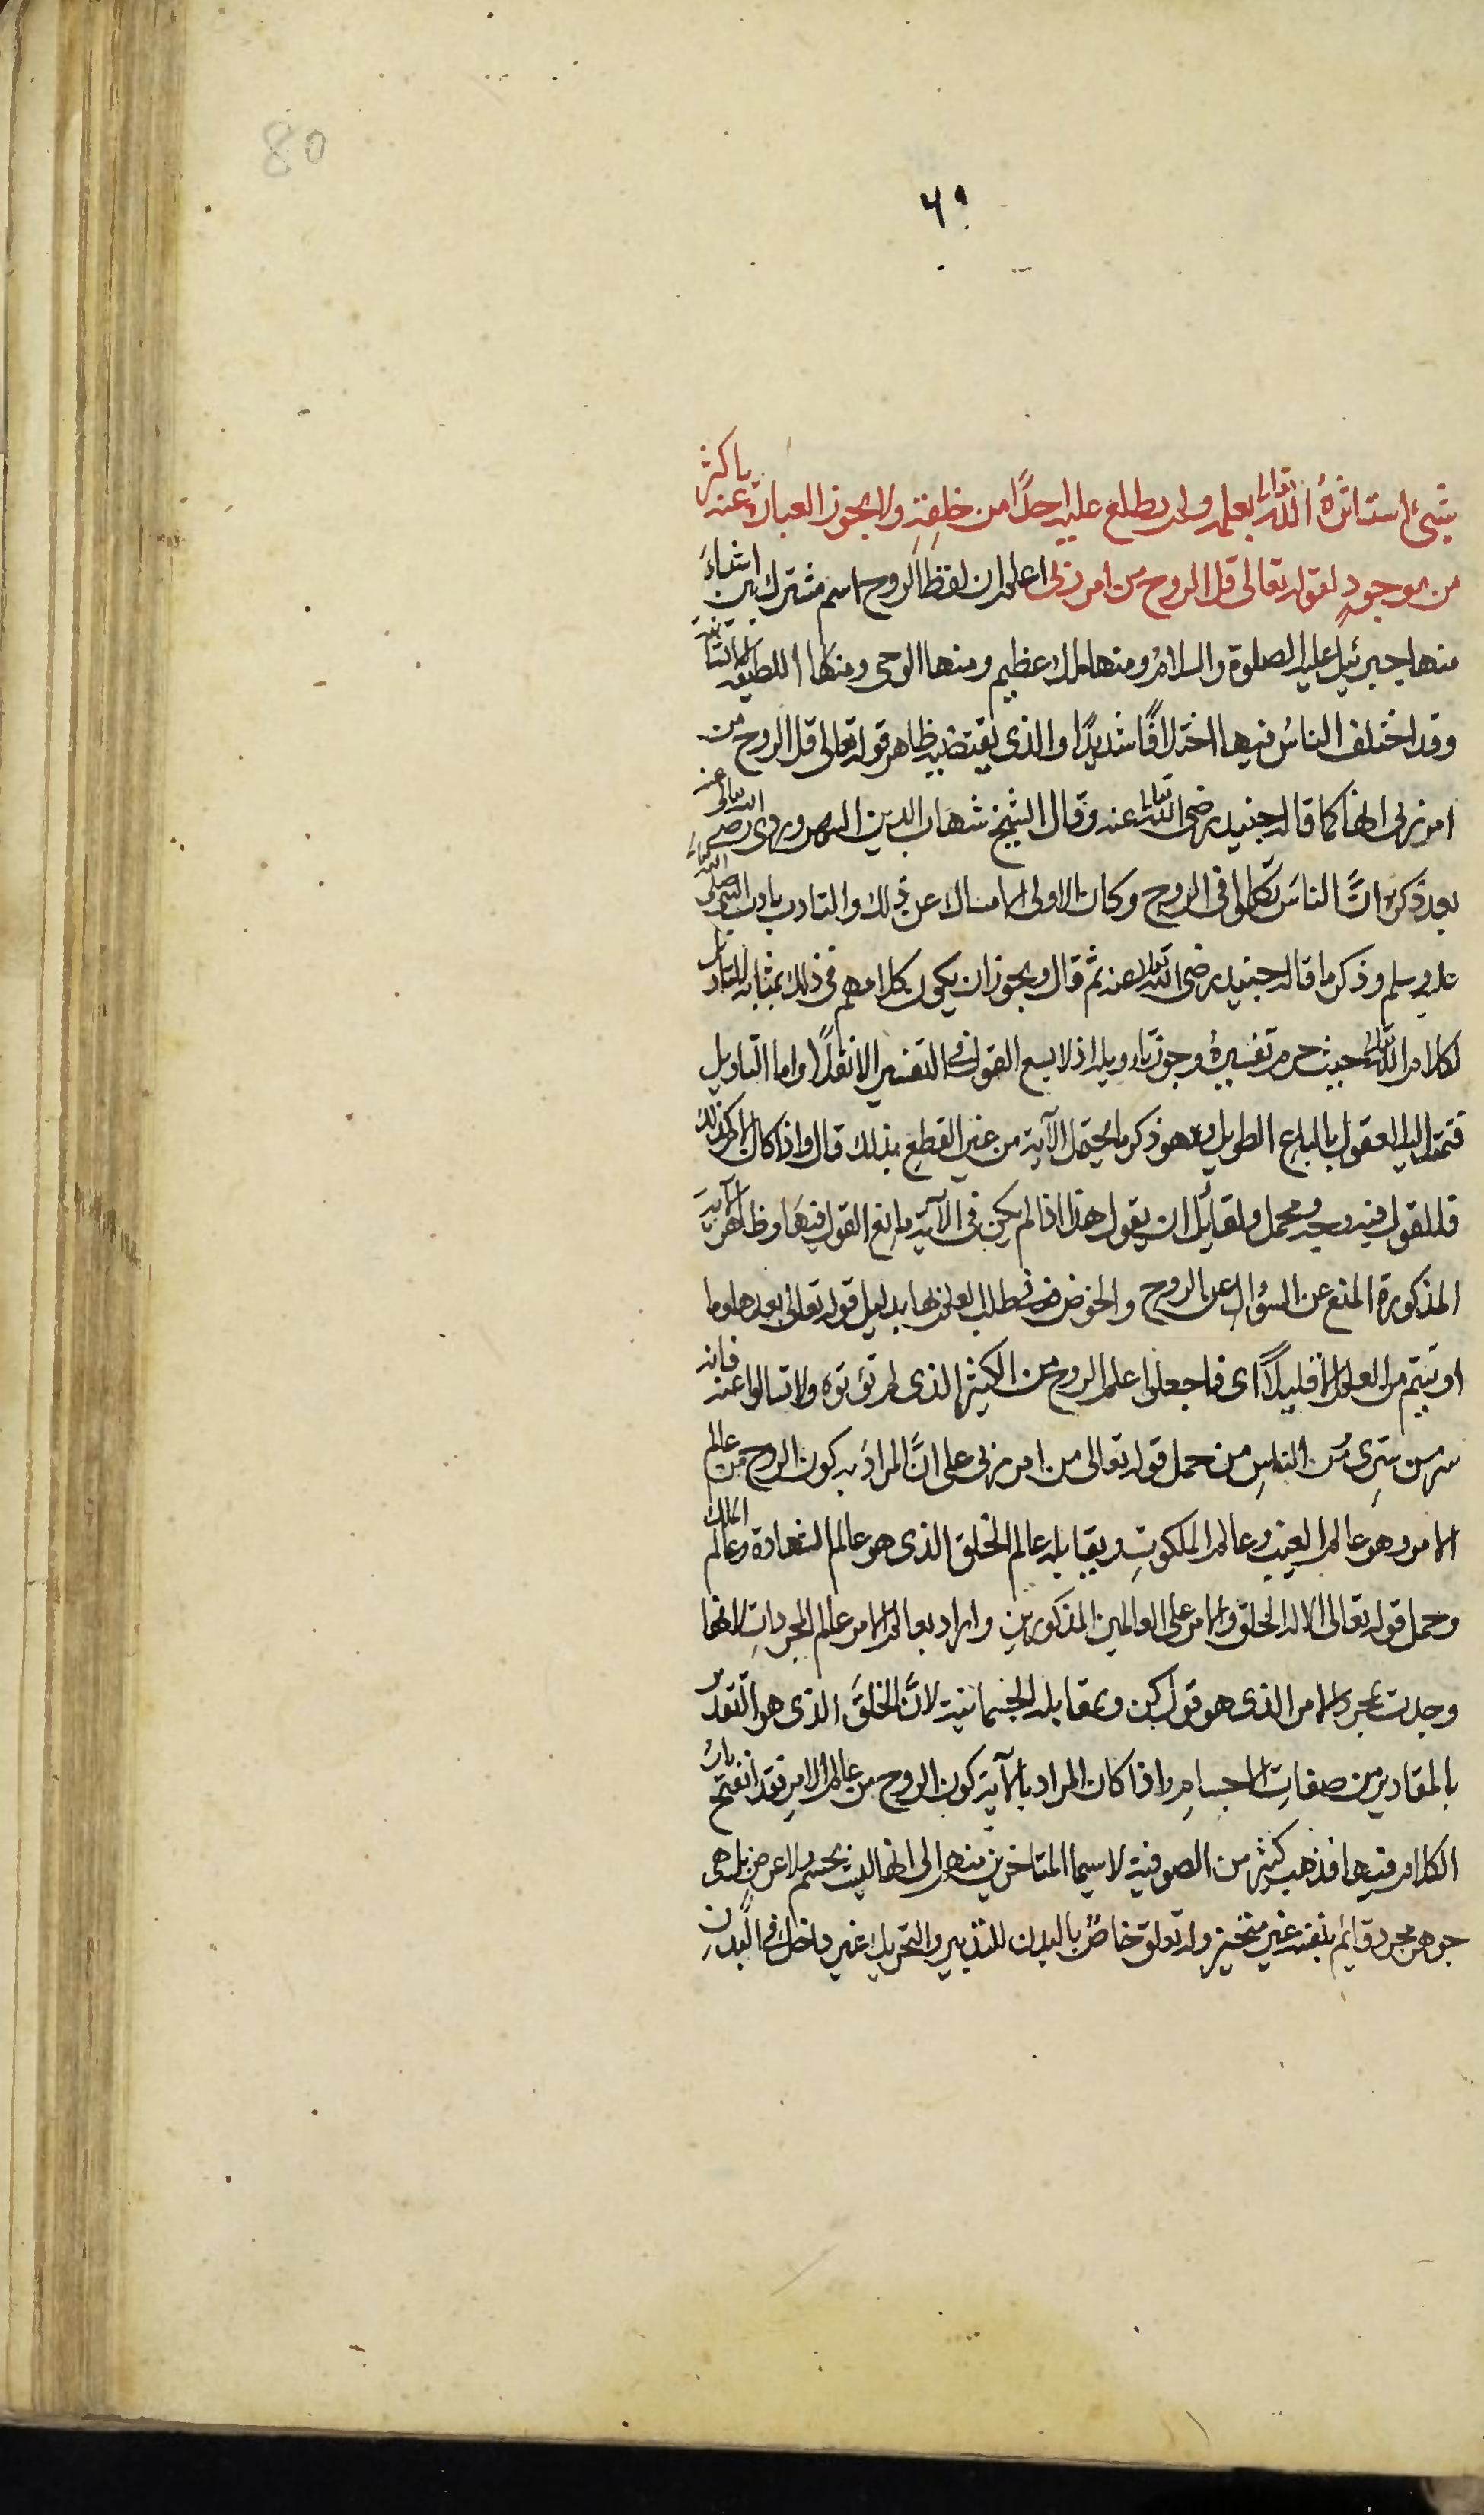 80
٦٠
شیئ استاثرهُ الله تعالى بعلمه ولم يطلع عليه احدًا من خلقِهِ ولا يجوز العبارة عنه باكثر
من موجودٍ لقوله تعالى قل الروح من امر ربى اعلم ان لفظ الروح اسم مشترك بين اشياءَ
منها جبرئيل عليه الصلوة والسلام ومنها ملك عظيم ومنها الوحى ومنها اللطيفة الانسانية
وقد اختلف الناسُ فيها اختلافًا شديدًا والذى يقتضيه ظاهر قوله تعالى قل الروح من
امر ربى انها كما قاله جنيد رضى الله تعالى عنه وقال الشيخ شهاب الدين السهروردى رضى الله تعالى عنه
بعد ذكره انَّ الناسَ تكلموا فى الروح وكان الاولى الامساك عن ذلك والتادب بادب النبى صلى الله تعالى
عليه وسلم وذكر ما قاله جنيد رضى الله تعالى عنه ثم قال ويجوز ان يكون كلامهم فى ذلك بمثابة التاويل
لكلام الله تعالى حيث حرم تفسيرهُ وجوز تاويله اذ لا يسع القول فى التفسير الا نقلًا واما التاويل
فتمتد اليه العقول بالباع الطويل وهو ذكر ما يحتمل الآية من غير القطع بذلك قال واذا كان الامر كذلك
فللقول فيه وجه ومحمل ولقائل ان يقول هذا اذا لم يكن فى الآية مانع القول فيها وظاهر الآية
المذكورة المنع عن السؤال عن الروح والخوض فى طلب العلم بها بدليل قوله تعالى بعدها وما
اوتيتم من العلم الا قليلًا اى فاجعلوا علم الروح من الكثير الذى لم تؤتوه ولا تسالوا عنه فانه
سر من سرى ومن الناسِ من حمل قوله تعالى من امر ربى على انَّ المرادَ به كون الروح من عالم
الامر وهو عالم الغيب وعالم الملكوتِ ويقابله عالم الخلق الذى هو عالم الشهادة وعالم الملك
وحمل قوله تعالى الا له الخلق والامر على العالمين المذكورينِ واراد بعالم الامر عالم المجرداتِ لانها
وجدت بمجرد الامر الذى هو قول كن وبمقابله الجسمانية لانَّ الخلقَ الذى هو التقدير
بالمقادير من صفاتِ الاجسامِ واذا كان المراد بالآية كون الروح من عالم الامرِ فقد انفتح بابُ
الكلام فيها فذهب كثير من الصوفية لا سيما المتاخرين منهم الى انها ليست بجسم ولا عرضٍ بل هى
جوهر مجرد قائم بنفسه غير متحيز وله تعلق خاصٌ بالبدن للتدبير والتحريك غير داخل فى البدنِ